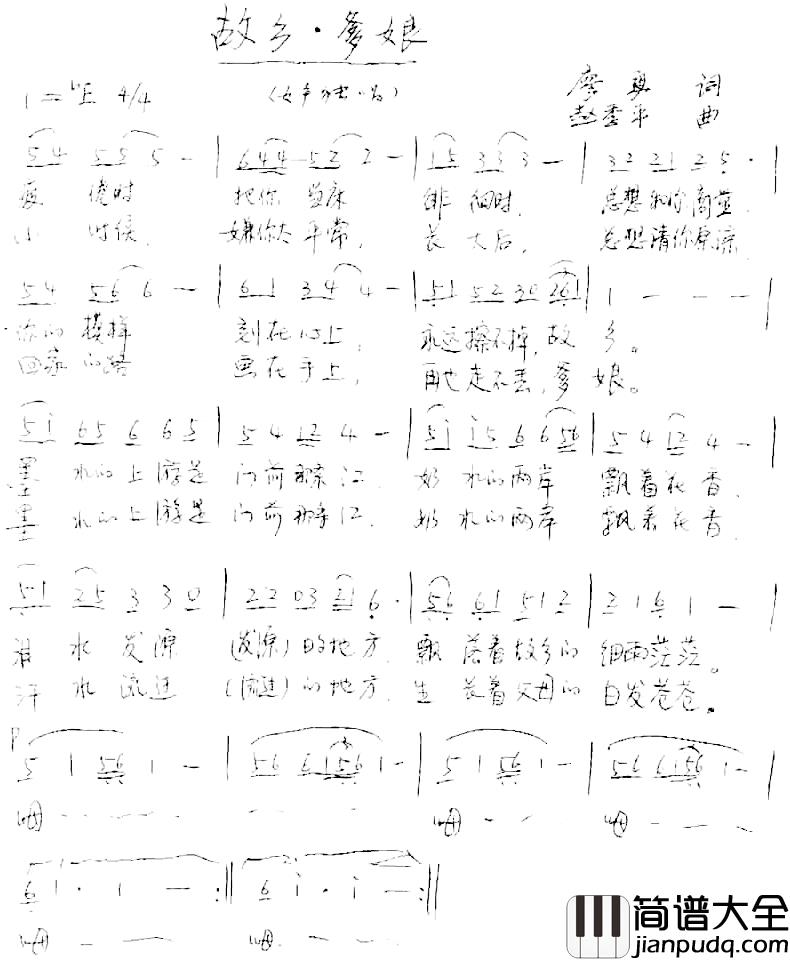 故乡·爹娘
1=♭E 4/4
(女声独唱)
廖勇 词
赵季平 曲
5 4 5 5 5 - | 6 4 4 5 2 2 - | 1 5 3 3 3 - | 3 2 2 1 2 5 · |
时 把你 当床 时, 总想和你商量.
小 时候, 嫌你太平常, 长大后, 总想请你原谅
5 4 5 6 6 - | 6 1 3 4 4 - | 5 1 5 2 3 0 2 6 1 | 1 - - - |
你的模样 刻在心上, 永远擦不掉,故乡。
回家的路 画在手上, 再也走不丢,爹娘。
5 i 6 5 6 6 5 | 5 4 1 2 4 - | 5 i i 5 6 6 5 6 | 5 4 1 2 4 - |
墨水的上游是 门前那条江, 奶水的两岸 飘着花香,
墨水的上游是 门前那条江, 奶水的两岸 飘着花香,
5 1 2 5 3 3 0 | 2 2 0 3 2 1 6 · | 5 6 6 1 5 1 2 | 2 1 6 1 - |
泪水发源 (发源)的地方, 飘落着故乡的 细雨茫茫。
汗水流进 (流进)的地方, 生长着父母的 白发苍苍。
P
5 1 5 6 1 - | 5 6 6 1 5 6 1 - | 5 1 5 6 1 - | 5 6 6 1 5 6 1 - |
6 1 · 1 - :‖ 6 i · i - :‖
简谱大全
jianpudq.com